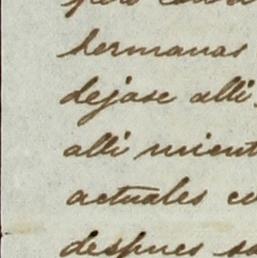 pero
hermanas
dejase alli
alli mient
actuales
despues